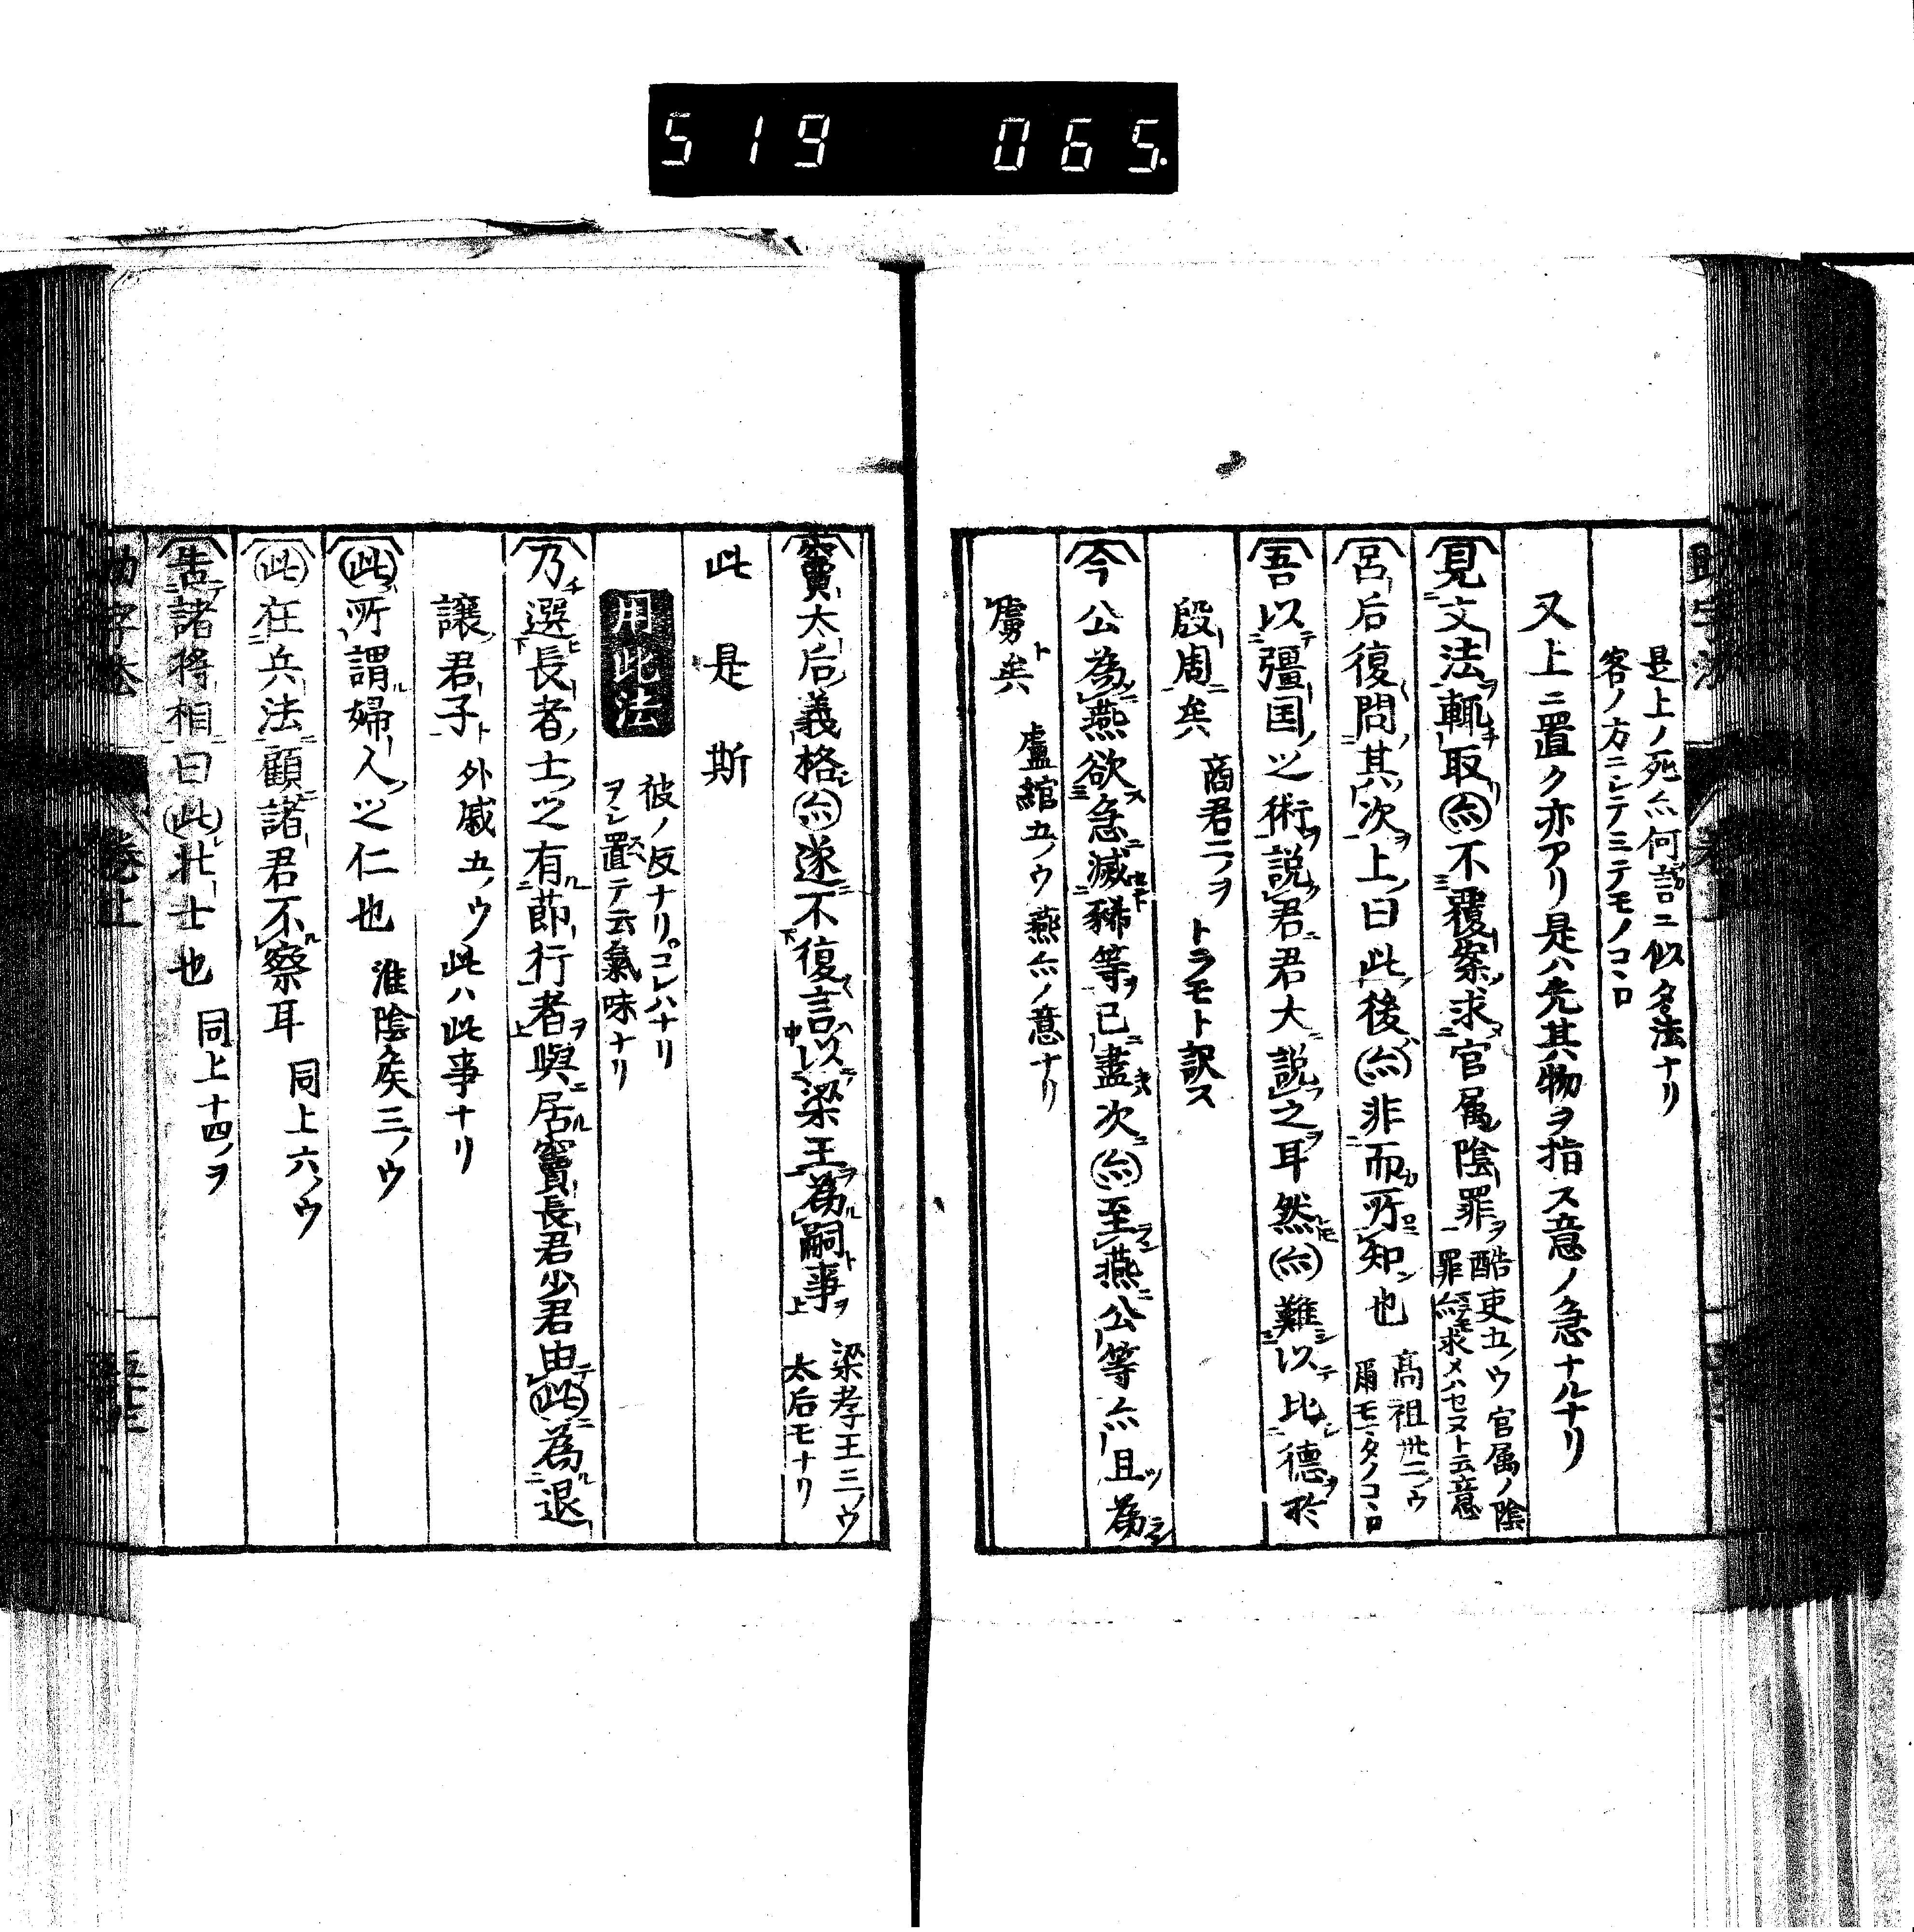 519 065.
是上ノ死亦何詬ニ似タ法ナリ
客ノ方ニシテミテモノコヽロ
又上ニ置ク亦アリ是ハ先其物ヲ指ス意ノ急ナルナリ
見文法輒取亦不覆案求官属陰罪 酷吏五ノウ官属ノ陰
罪亦モ求メハセヌト云意
呂后復問其次上曰此後亦非而所知也 高祖卅二ノウ
爾モ
吾以彊国之術説君君大説之耳然亦難以比德於
殷周矣 商君二ノヲ トラモト訳ス
今公為燕欲急滅豨等已盡次亦至燕公等亦且為
虜矣 盧綰五ノウ燕亦ノ意ナリ
竇太后義格亦遂不復言以梁王為嗣事 梁孝王三ノウ
太后モナリ
此 是 斯
用此法 彼ノ反ナリコレハナリ
ヲシ置テ云氣味ナリ
乃選長者士之有節行者與居竇長君少君由此為退
讓君子 外戚五ノウ此ハ此事ナリ
此所謂婦人之仁也 淮陰矦三ノウ
此在兵法顧諸君不察耳 同上六ノウ
告諸将相曰此壮士也 同上十四ノヲ